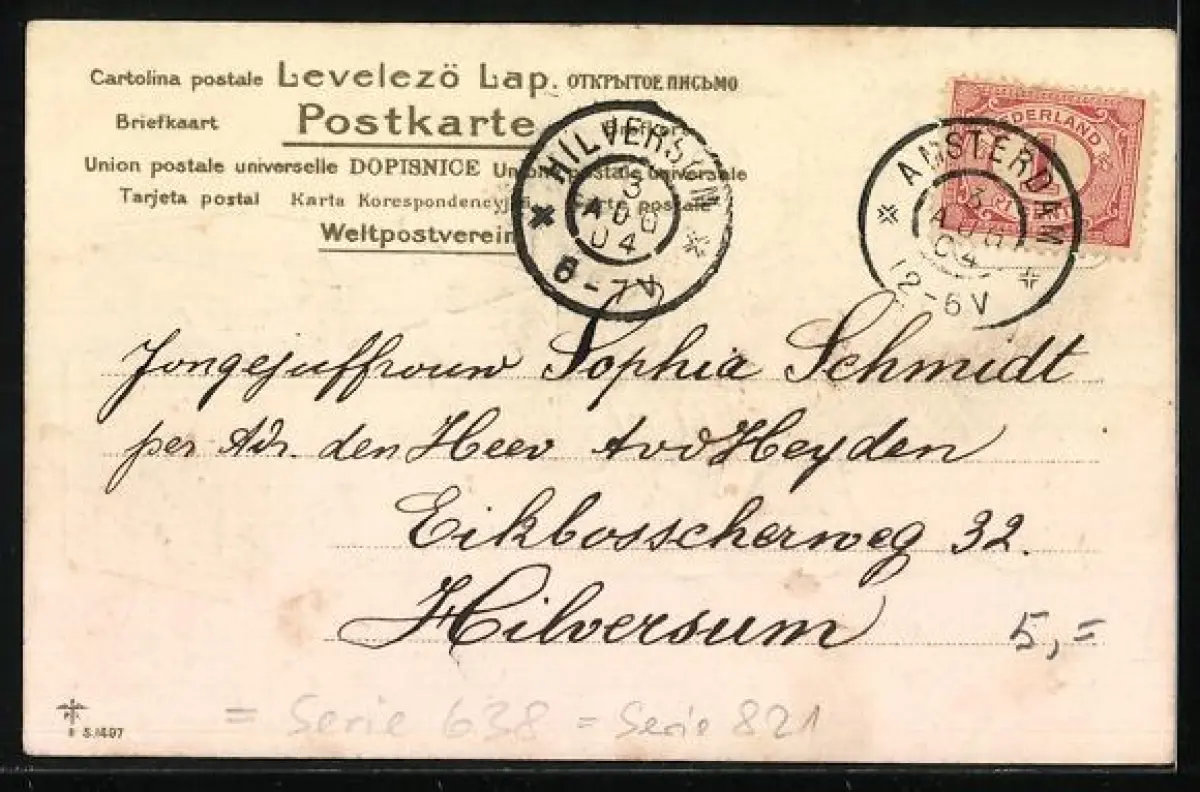 Cartolina postale Levelező Lap. ОТКРЫТОЕ ПИСЬМО
Briefkaart Postkarte
Union postale universelle DOPISNICE Union postale universelle
Tarjeta postal Karta Korespondencyjna Carte postale
Weltpostverein
HILVERSUM
3
AUG
04
6-7V
NEDERLAND
1/2 CENT
AMSTERDAM
3
AUG
04
12-6V
Jongejuffrouw Sophia Schmidt
per Adr. den Heer AvdHeyden
Eikbosscherweg 32.
Hilversum
5,=
= Serie 638 = Serie 821
S.1497